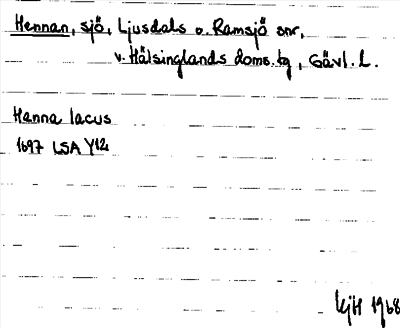 Hennan, sjö, Ljusdals o. Ramsjö snr,
v. Hälsinglands doms. tg, Gävl. L.
Henna lacus
1697 LSA Y12
1968